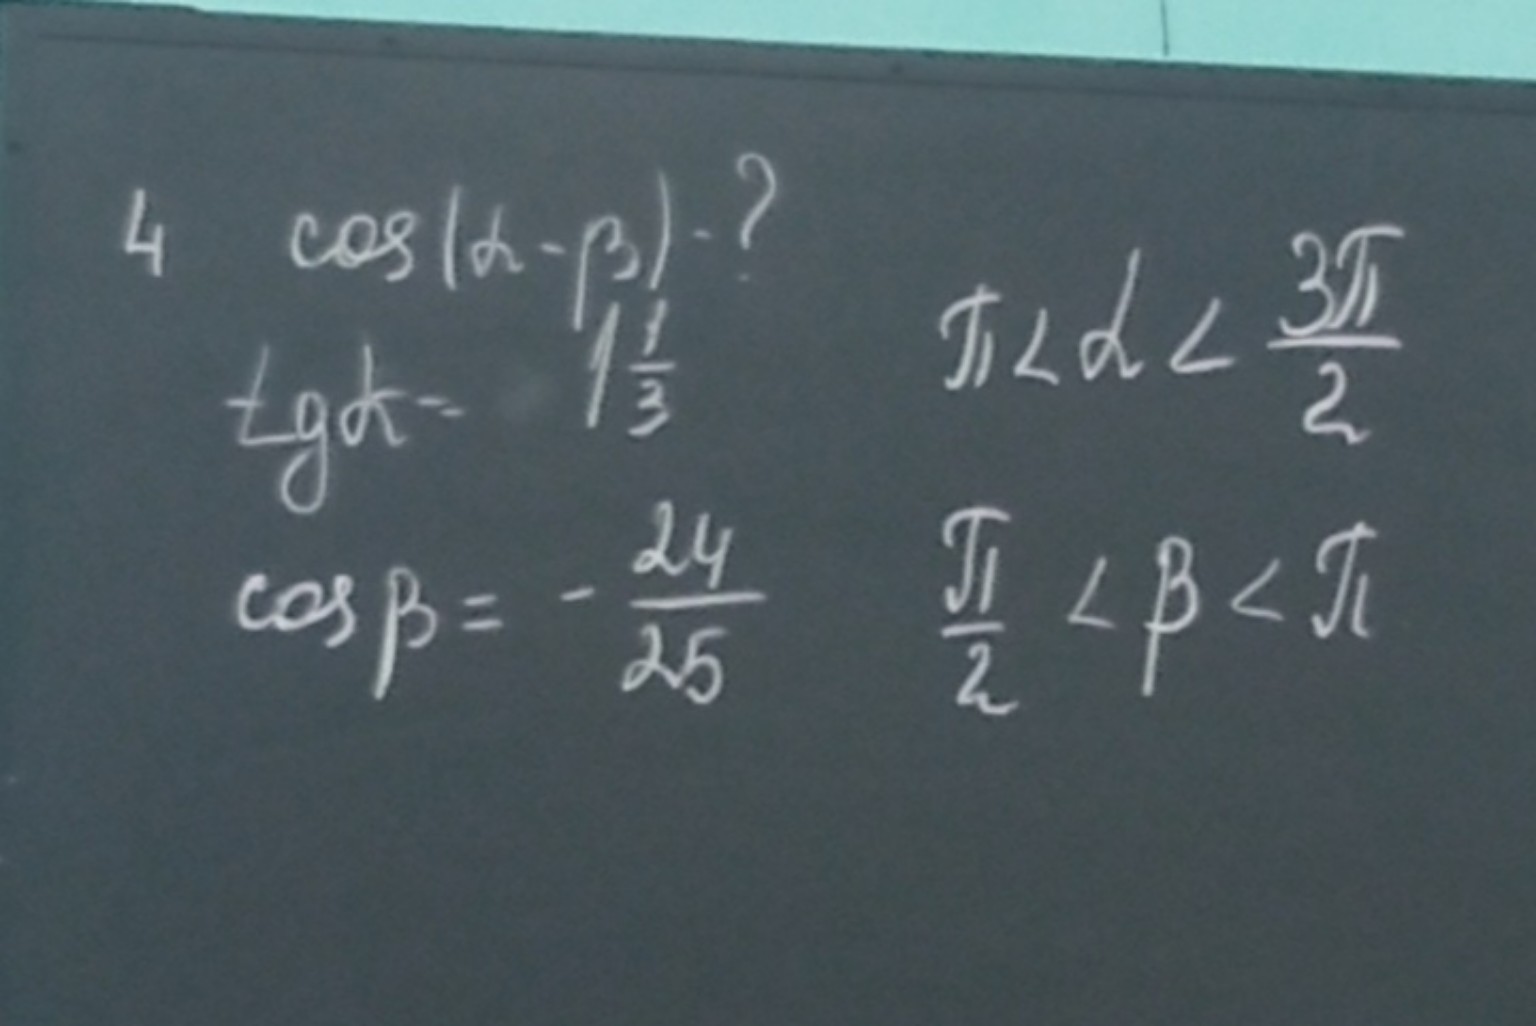 4 cos(α-β)-?
tgα= 1 1/3 π<α<3π/2
cosβ= -24/25 π/2<β<π